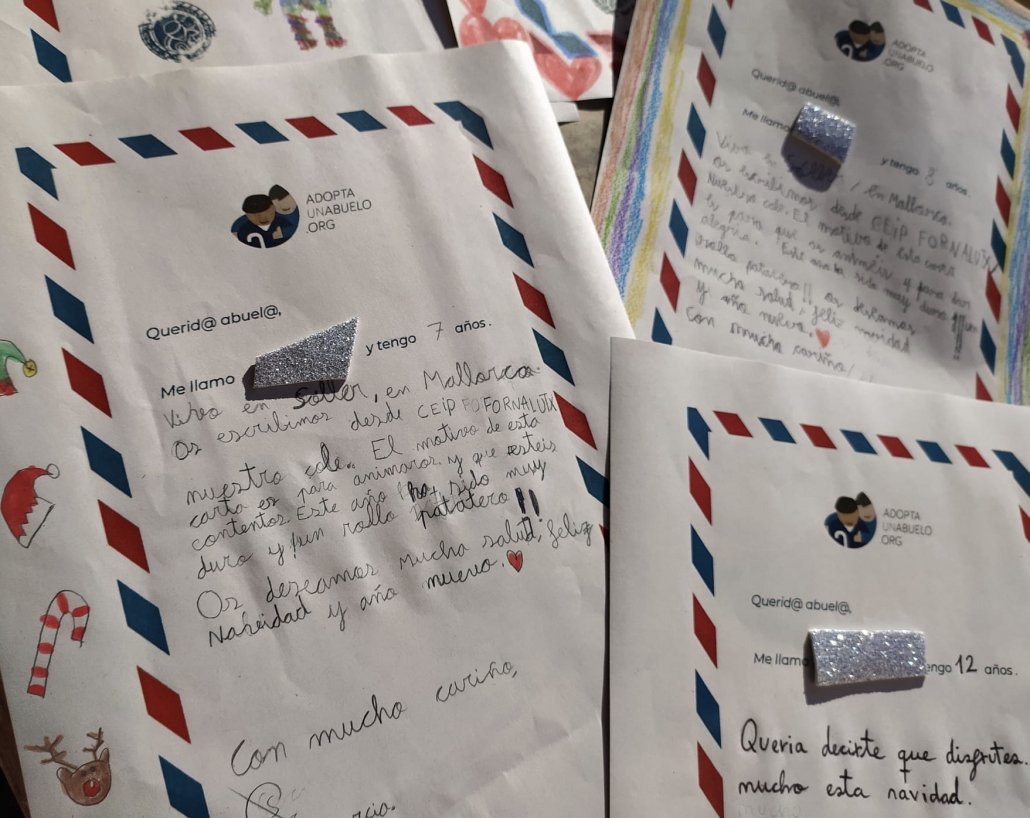 ADOPTA
UNABUELO
.ORG
Querid@ abuel@,
Me llamo
y tengo 7 años.
Vivo en Soller, en Mallorca.
Os escribimos desde CEIP FORNALUTX
nuestro cole. El motivo de esta
carta es para animaros y que esteis
contentos. Este año ha sido muy
duro y un rollo patatero!!
Os deseamos mucha salud, feliz
Navidad y año nuevo.
Con mucho cariño,
ADOPTA
UNABUELO
.ORG
Querid@ abuel@,
Me llamo
y tengo 8 años.
Vivo en Soller, en Mallorca.
os escribimos desde CEIP FORNALUTX
Nuestro cole. El motivo de esta carta
es para que os animéis y para dar
alegria. Este año ha sido muy duro y un
rollo patatero!! os deseamos
mucha salud, feliz navidad
y año nuevo.
Con mucho cariño,
ADOPTA
UNABUELO
.ORG
Querid@ abuel@,
Me llam
engo 12 años.
Queria decirte que disfrutes
mucho esta navidad.